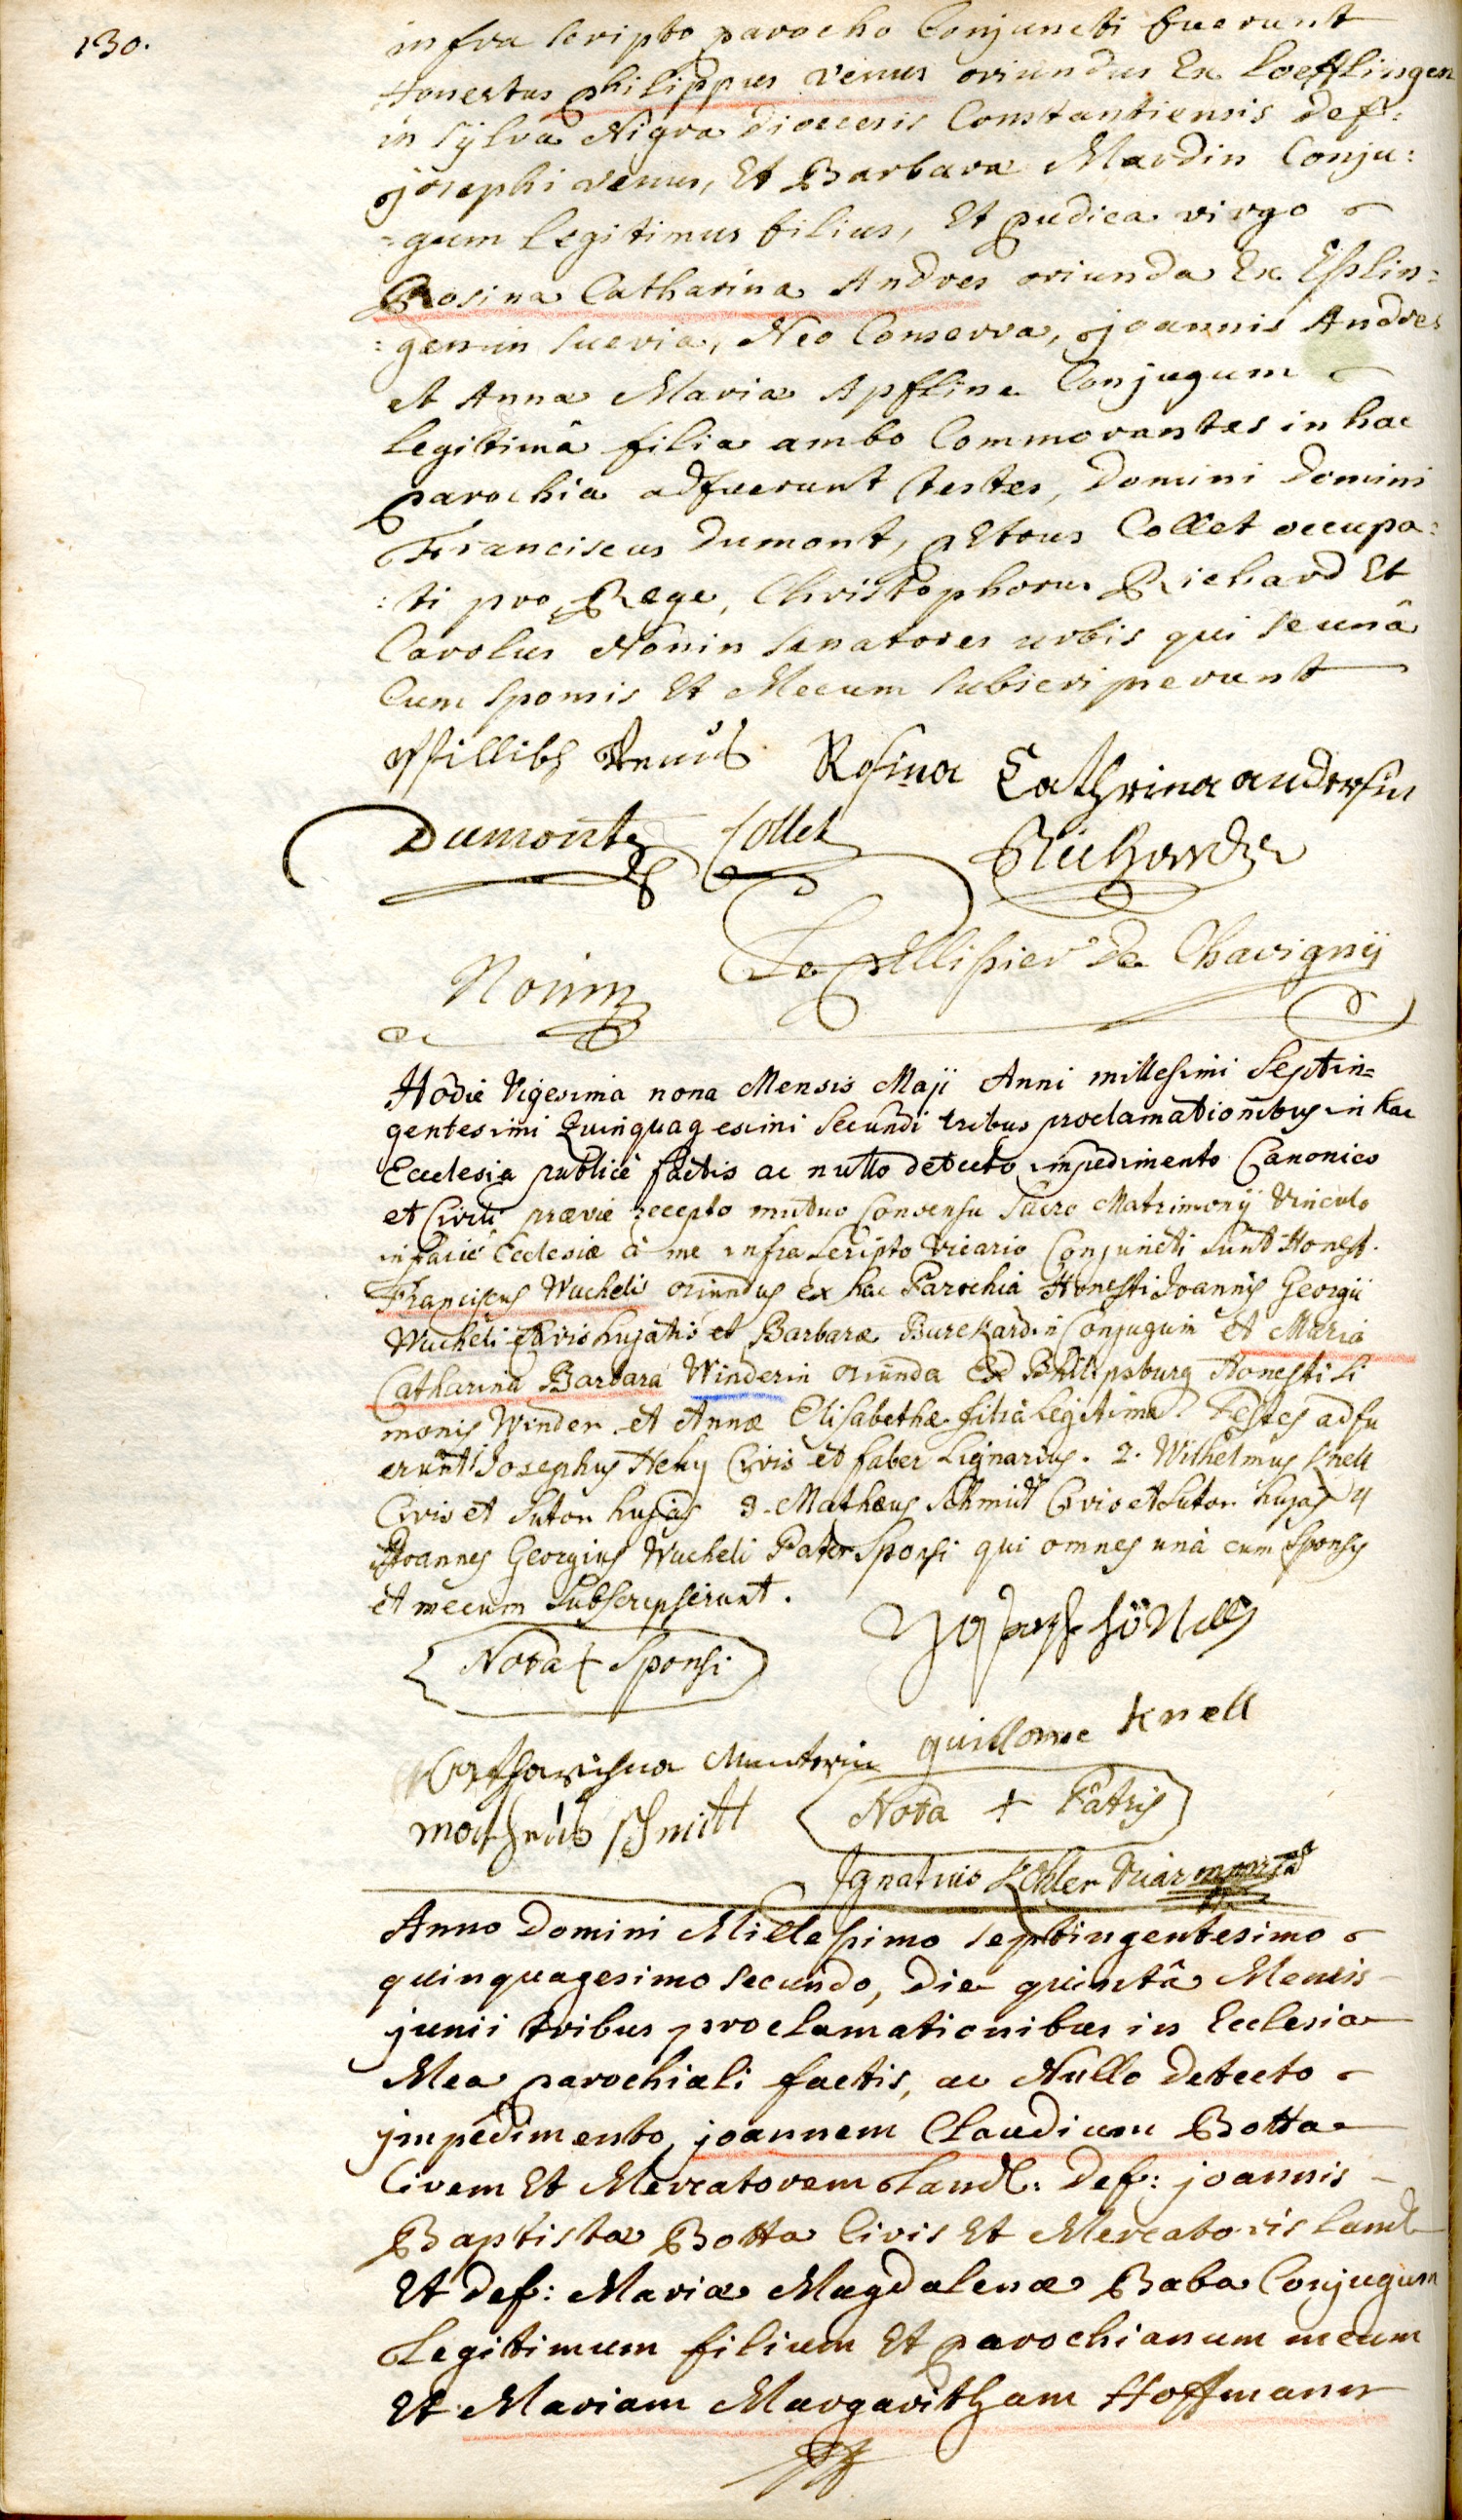 130.
infra scripto parocho Conjuncti fuerunt
Honestus philippus venus oriundus Ex Loefflingen
in sylva Nigra dioecesis Constantiensis def:
josephi venus, Et Barbara Mardin Conju:
=gum legitimus filius, Et pudica virgo
Rosina Catharina Andres oriunda Ex Eßlin:
:gen in suevia, Neo Conversa, joannis Andres
et Anna Maria Apfline Conjugum
legitimâ filia ambo Commorantes in hac
parochia adfuerunt testes, Domini Domini
Franciscus Dumont, petrus Collet occupa:
:ti pro Rege, Christophorus Richard Et
Carolus Nonin senatores urbis qui se unâ
Cum sponsis Et Mecum subscripserunt
Phillibs Venus Rosina Cathrina andresin
Dumont Collet Richard
Nonin Le Pellissier De Chavignÿ
Hodie Vigesima nona Mensis Maji Anni millesimi Septin=
gentesimi Quinquagesimi Secundi tribus proclamationibus in hac
Ecclesia publicè factis ac nullo detecto impedimento Canonico
et Civili prævie recepto mutuo Consensu Sacro Matrimonÿ Vinculo
in facie Ecclesiæ à me infra Scripto Vicario Conjuncti Sunt Honest.
Franciscus Wucheli oriundus ex hac Parochia Honesti Joannis Georgii
Wucheli Civis hujatis et Barbaræ Burckardin Conjugum et Maria
Catharina Barbara Winderin oriunda Ex Philipsburg Honesti Si
monis Winder et Annæ Elisabethæ filia Legitima. Testes adfu
erunt 1 Josephus Hehy Civis et faber Lignarius. 2. Wilhelmus Knell
Civis et Sutor hujas 3. Mathæus Schmidt Civis et Sutor hujas 4
Joannes Georgius Wucheli Pater Sponsi qui omnes unà cum Sponsis
et mecum Subscripserunt.
Nota + Sponsi
Catharina
guillome Knell
matheus schmitt Nota + Patris
Ignatius Kohler Vicar
Anno Domini Millessimo septingentesimo
quinquagesimo secundo, Die quintâ Mensis
junii tribus proclamationibus in Ecclesia
Mea parochiali factis, ac Nullo Detecto
jmpedimento, joannem Claudium Botta
Civem Et Mercatorem Land: Def: joannis
Baptista Botta Civis Et Mercatoris Land
Et Def: Mariæ Magdalenæ Baba Conjugum
Legitimum filium Et parochianum meum
Et Mariam Margaritham Hoffmann